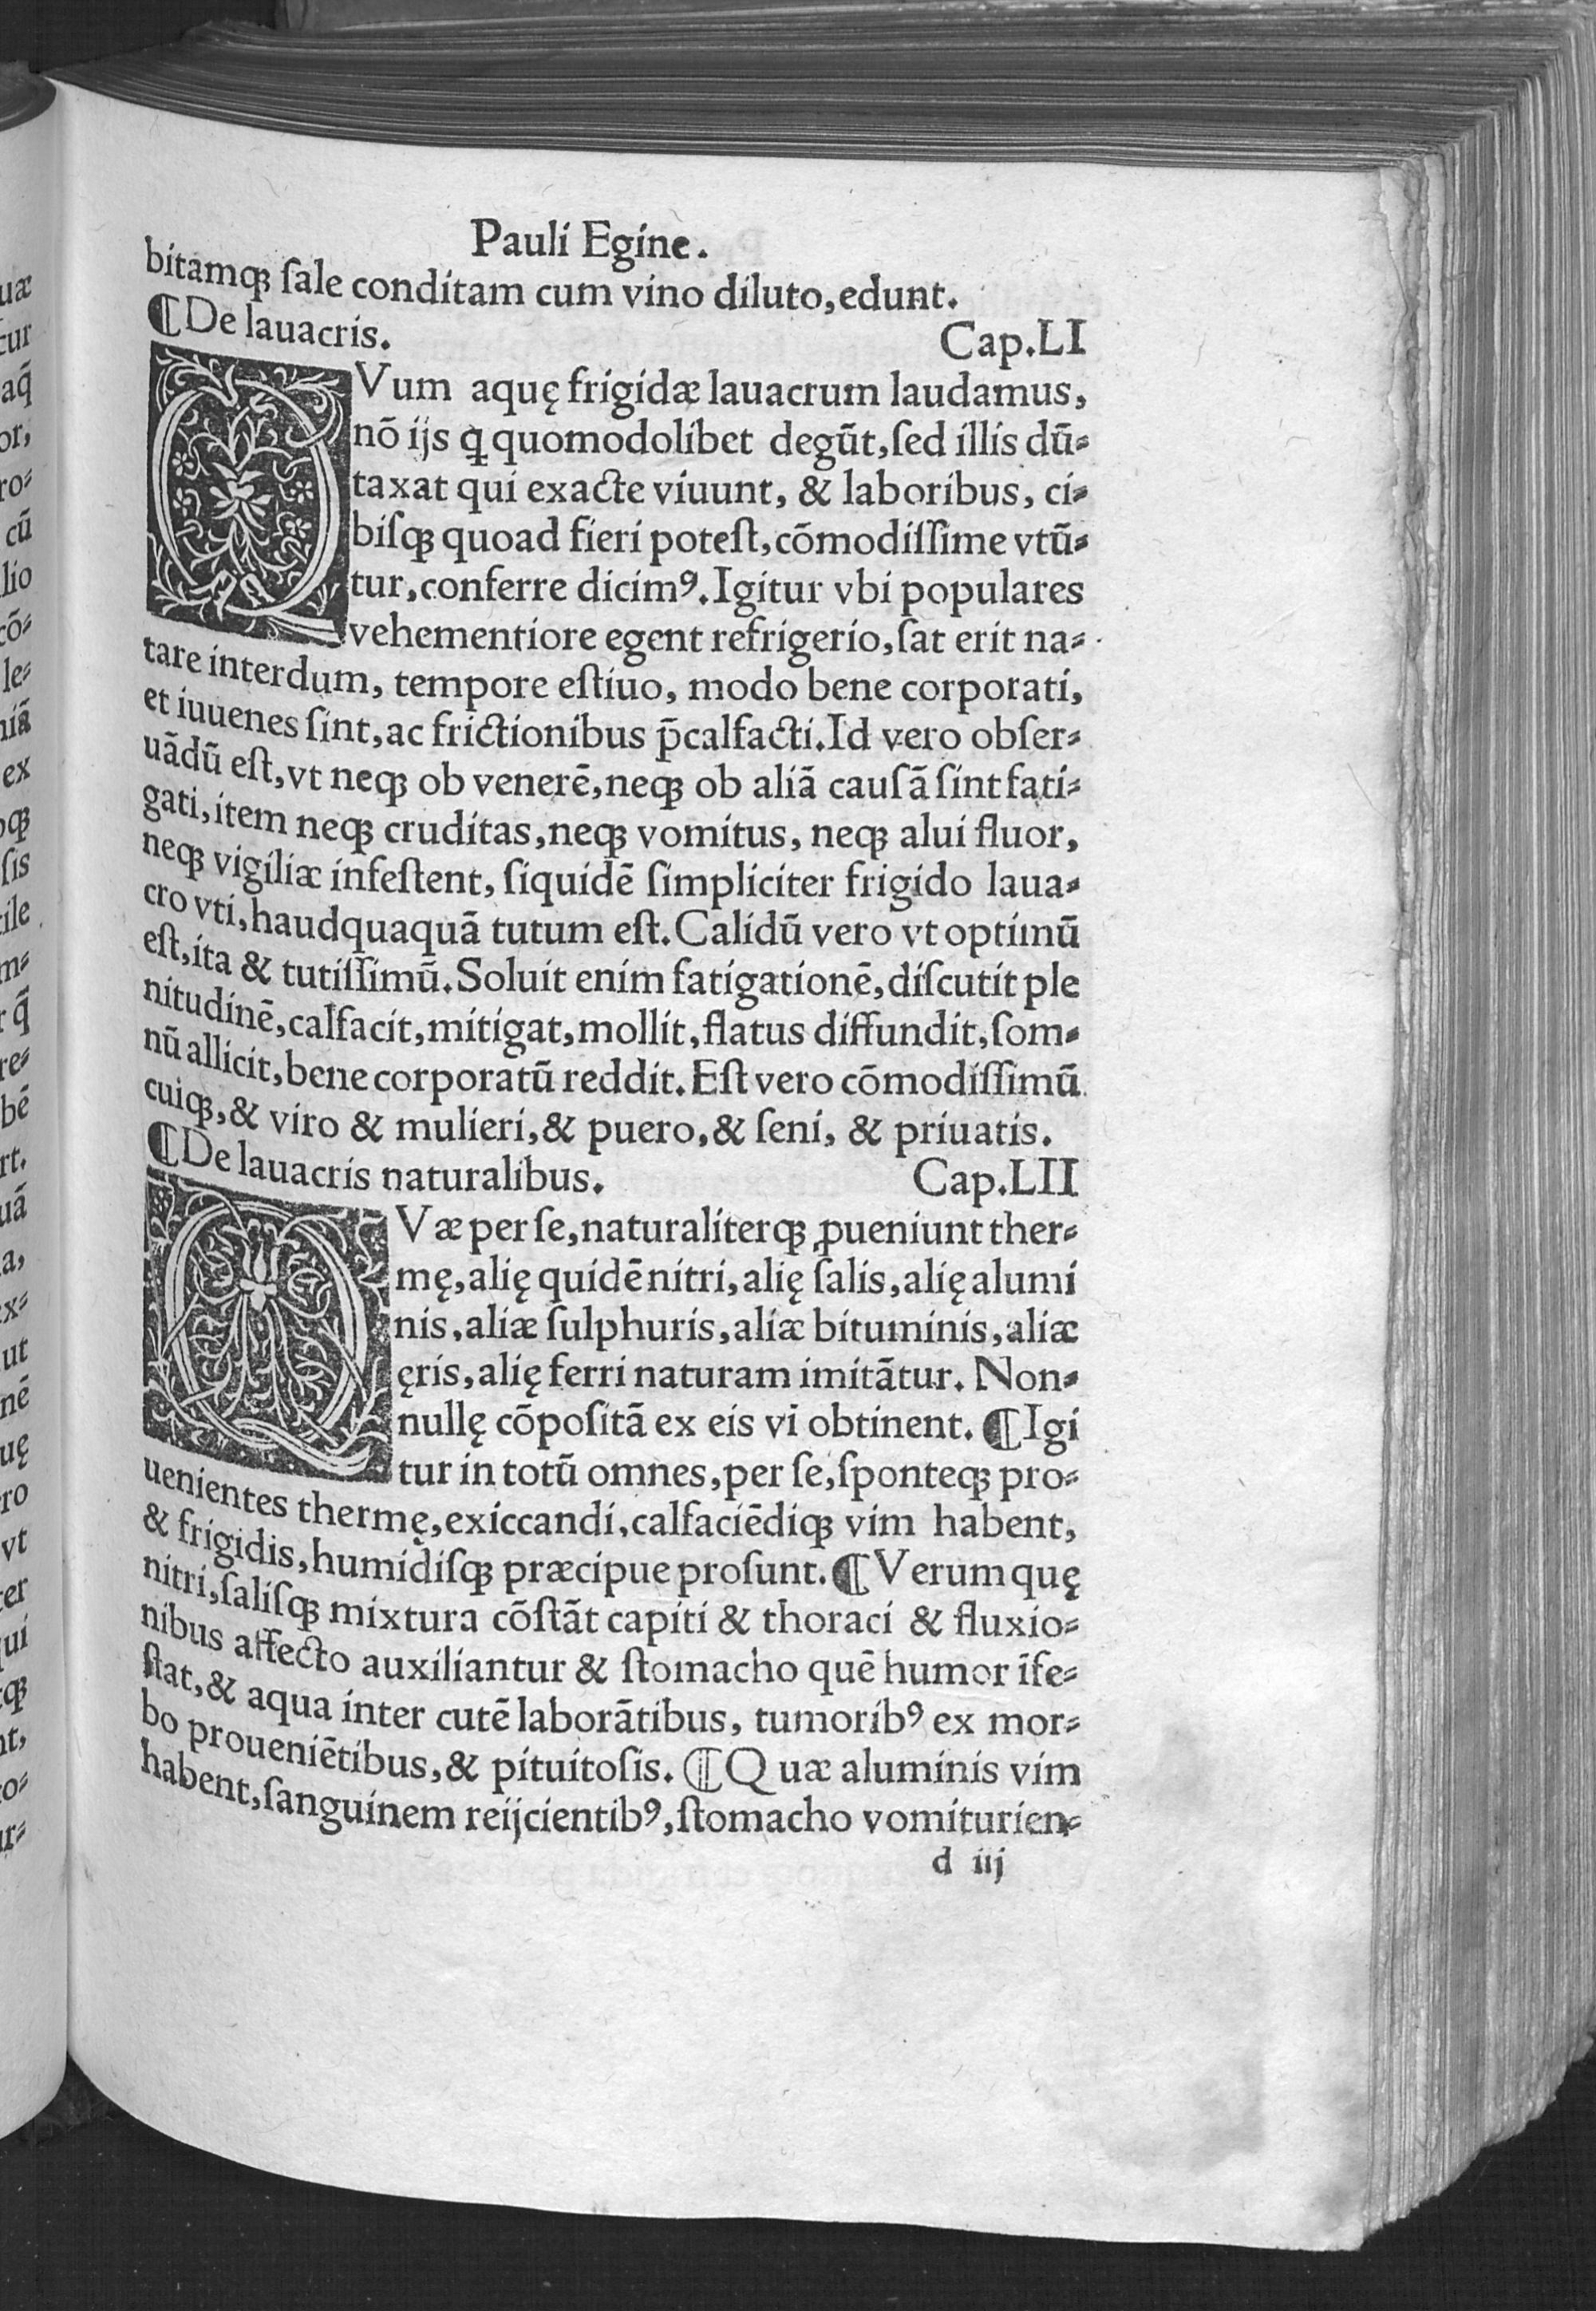 Pauli Egine.
bitamqꝫ ſale conditam cum vino diluto, edunt.
¶De lauacris. Cap.LI
QVum aquę frigidæ lauacrum laudamus,
nō ijs ꝗ quomodolibet degūt, ſed illis dū⸗
taxat qui exacte viuunt, & laboribus, ci⸗
biſqꝫ quoad fieri poteſt, cōmodiſſime vtū⸗
tur, conferre dicimꝰ. Igitur vbi populares
vehementiore egent refrigerio, ſat erit na⸗
tare interdum, tempore eſtiuo, modo bene corporati,
et iuuenes ſint, ac frictionibus p̄calfacti. Id vero obſer⸗
uādū eſt, vt neqꝫ ob venerē, neqꝫ ob aliā cauſā ſint fati⸗
gati, item neqꝫ cruditas, neqꝫ vomitus, neqꝫ alui fluor,
neqꝫ vigiliæ infeſtent, ſiquidē ſimpliciter frigido laua⸗
cro vti, haudquaquā tutum eſt. Calidū vero vt optimū
eſt, ita & tutiſſimū. Soluit enim fatigationē, diſcutit ple
nitudinē, calfacit, mitigat, mollit, flatus diffundit, ſom⸗
nū allicit, bene corporatū reddit. Eſt vero cōmodiſſimū
cuiqꝫ, & viro & mulieri, & puero, & ſeni, & priuatis.
¶De lauacris naturalibus. Cap.LII
QVæ per ſe, naturaliterqꝫ ꝓueniunt ther⸗
mę, alię quidē nitri, alię ſalis, alię alumi
nis, aliæ ſulphuris, aliæ bituminis, aliæ
ęris, alię ferri naturam imitātur. Non⸗
nullę cōpoſitā ex eis vi obtinent. ¶Igi
tur in totū omnes, per ſe, ſponteqꝫ pro⸗
uenientes thermę, exiccandi, calfaciēdiqꝫ vim habent,
& frigidis, humidiſqꝫ præcipue proſunt. ¶Verum quę
nitri, ſaliſqꝫ mixtura cōſtāt capiti & thoraci & fluxio⸗
nibus affecto auxiliantur & ſtomacho quē humor īfe⸗
ſtat, & aqua inter cutē laborātibus, tumoribꝰ ex mor⸗
bo proueniētibus, & pituitoſis. ¶Quæ aluminis vim
habent, ſanguinem reijcientibꝰ, ſtomacho vomiturien⸗
d iij